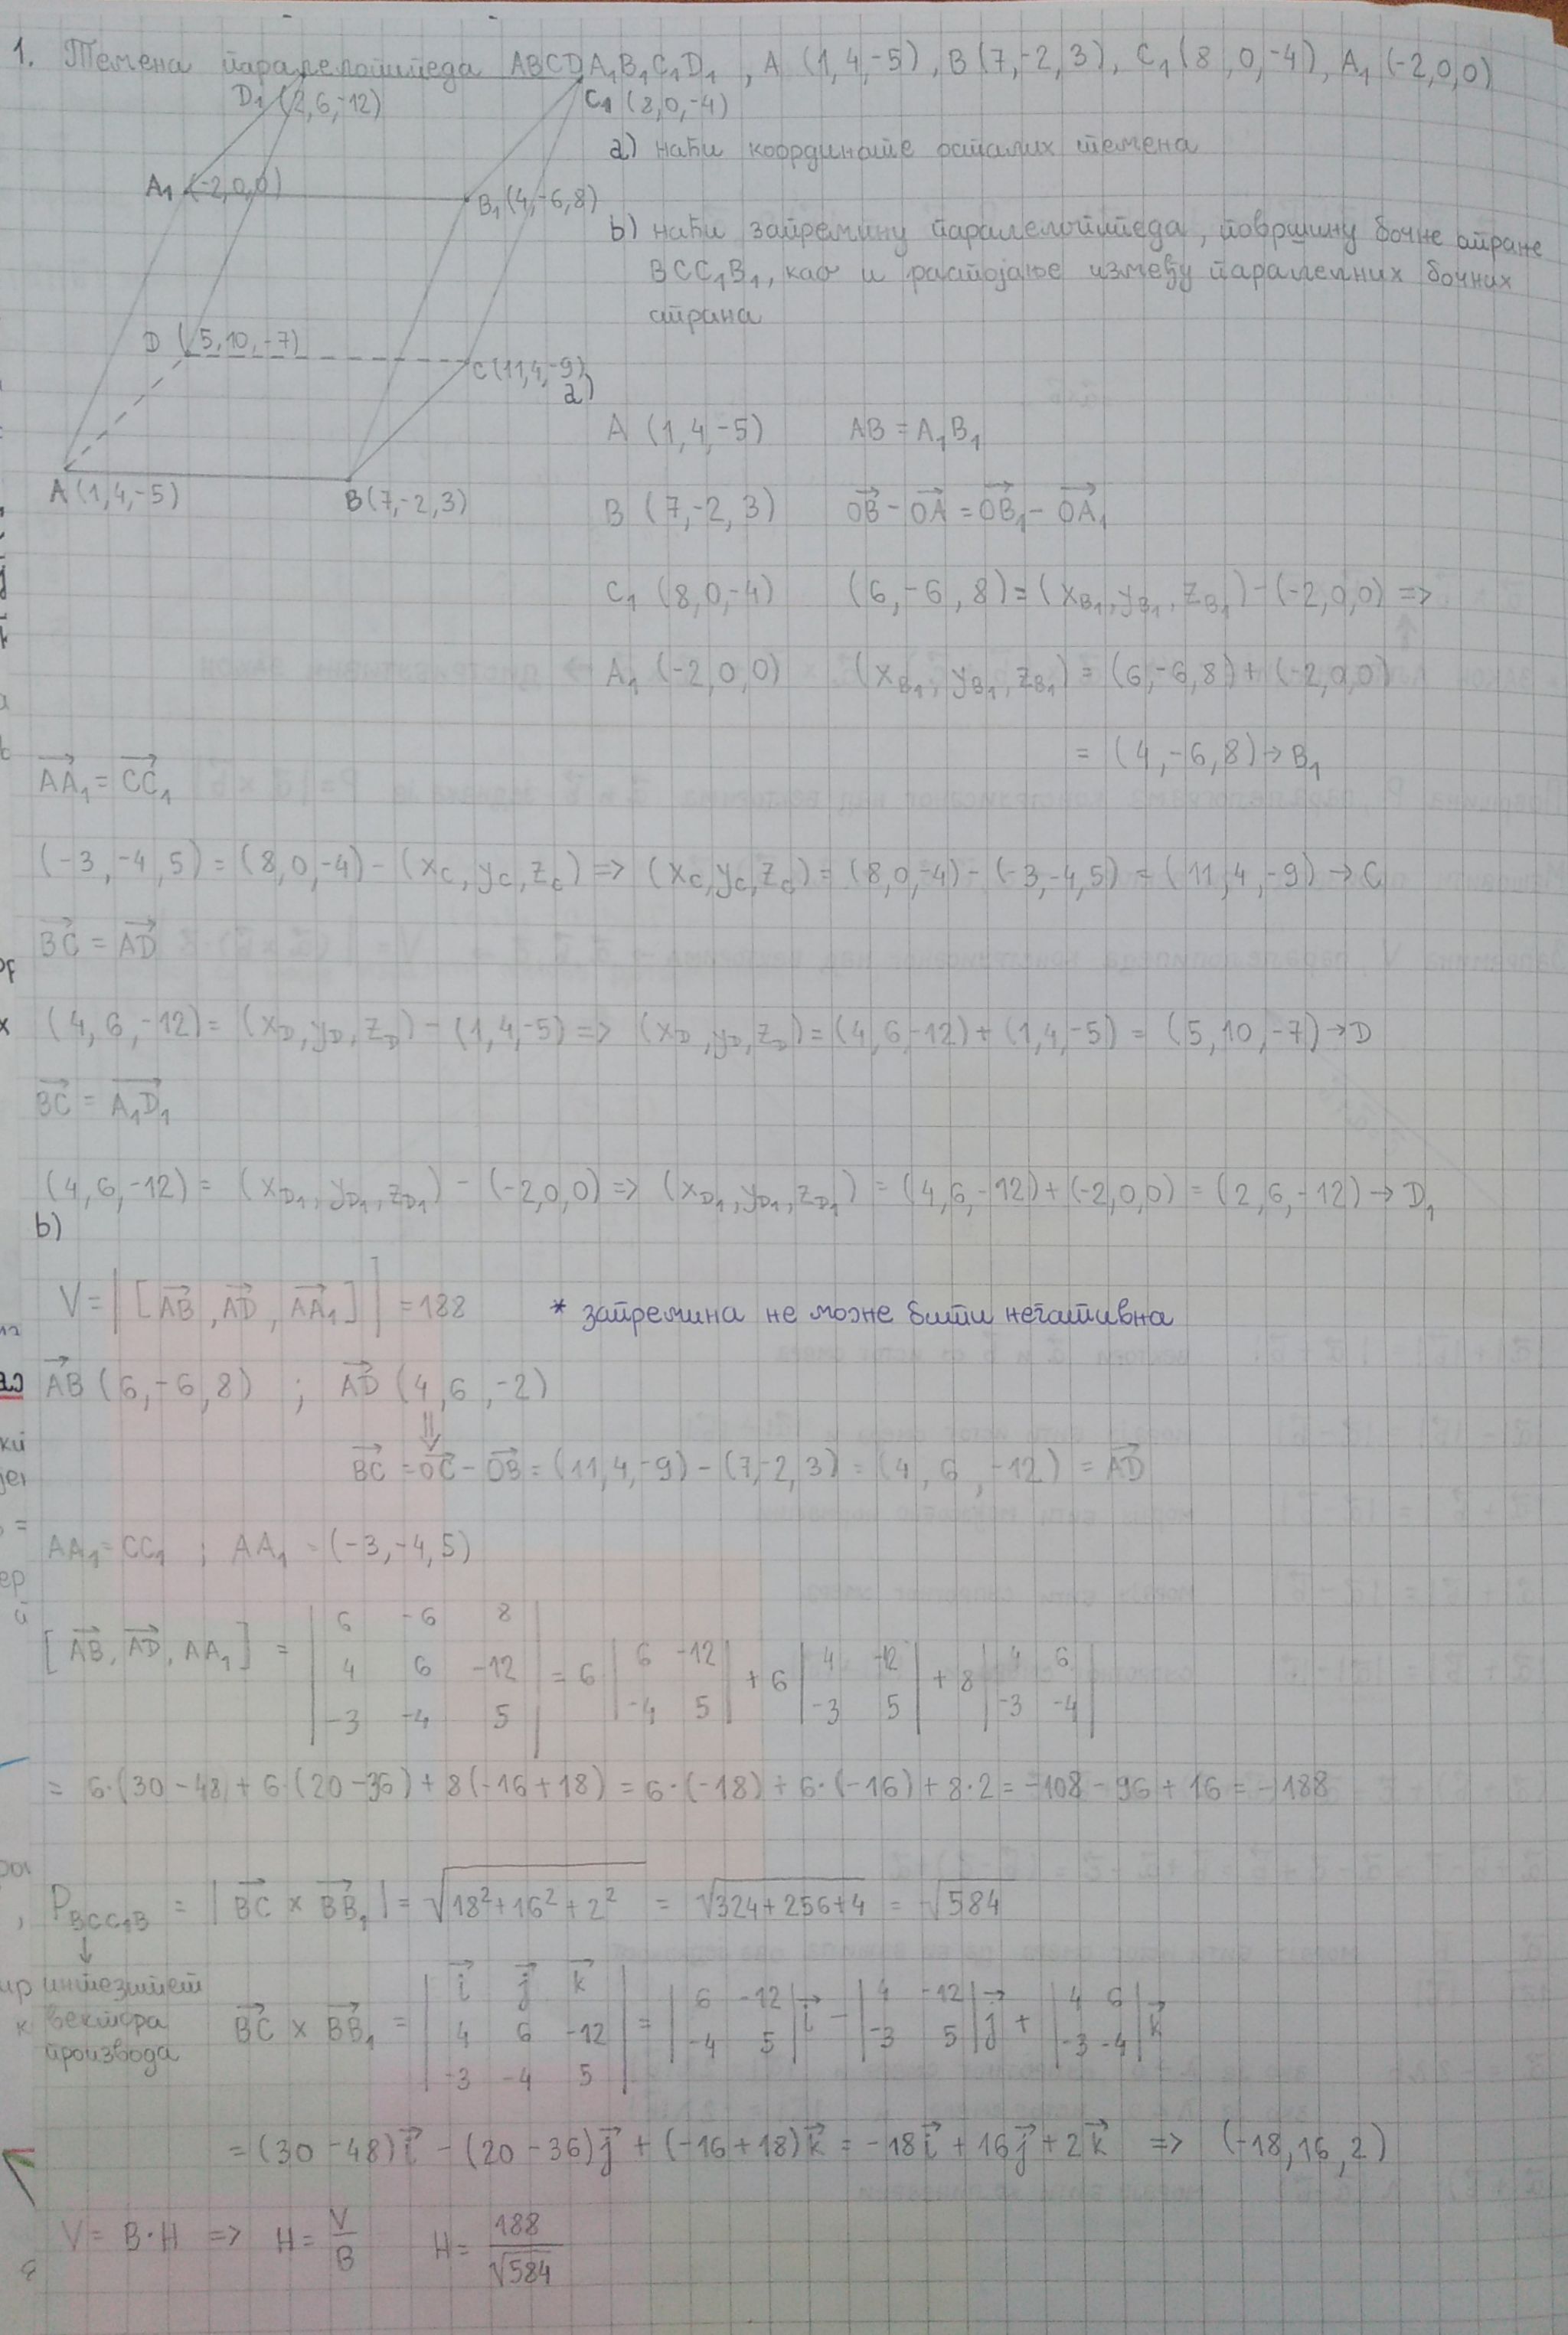 1. Темена паралелопипеда ABCDA₁B₁C₁D₁, A (1,4,-5), B(7,-2,3), C₁(8,0,-4), A₁(-2,0,0)
D₁(2,6,-12)
C₁ (8,0,-4)
a) наћи координате осталих темена
A₁ (-2,0,0)
B₁(4,-6,8)
b) наћи запремину паралелопипеда, површину бочне стране
BCC₁B₁, као и растојање између паралелних бочних
страна
D (5,10,-7)
C(11,4,-9)
a)
A (1,4,-5) AB = A₁B₁
A(1,4,-5)
B(7,-2,3)
B (7,-2,3) OB⃗ - OA⃗ = OB₁⃗ - OA₁⃗
C₁ (8,0,-4) (6,-6,8) = (x_B₁, y_B₁, z_B₁) - (-2,0,0) =>
A₁ (-2,0,0) (x_B₁, y_B₁, z_B₁) = (6,-6,8) + (-2,0,0)
= (4,-6,8) → B₁
AA₁⃗ = CC₁⃗
(-3,-4,5) = (8,0,-4) - (x_C, y_C, z_C) => (x_C, y_C, z_C) = (8,0,-4) - (-3,-4,5) = (11,4,-9) → C
BC⃗ = AD⃗
(4,6,-12) = (x_D, y_D, z_D) - (1,4,-5) => (x_D, y_D, z_D) = (4,6,-12) + (1,4,-5) = (5,10,-7) → D
BC⃗ = A₁D₁⃗
(4,6,-12) = (x_D₁, y_D₁, z_D₁) - (-2,0,0) => (x_D₁, y_D₁, z_D₁) = (4,6,-12) + (-2,0,0) = (2,6,-12) → D₁
b)
V = |[AB⃗, AD⃗, AA₁⃗]| = 188 * запремина не може бити негативна
AB⃗ (6,-6,8) ; AD⃗ (4,6,-2)
⇓
BC⃗ = OC⃗ - OB⃗ = (11,4,-9) - (7,-2,3) = (4,6,-12) = AD⃗
AA₁ = CC₁ ; AA₁ = (-3,-4,5)
[AB⃗, AD⃗, AA₁] = |6 -6 8; 4 6 -12; -3 -4 5| = 6|6 -12; -4 5| + 6|4 -12; -3 5| + 8|4 6; -3 -4|
= 6·(30-48) + 6·(20-36) + 8(-16+18) = 6·(-18) + 6·(-16) + 8·2 = -108 - 96 + 16 = -188
P_BCC₁B = |BC⃗ × BB₁⃗| = √18²+16²+2² = √324+256+4 = √584
↓
интезитет
вектора
производа
BC⃗ × BB₁⃗ = |i⃗ j⃗ k⃗; 4 6 -12; -3 -4 5| = |6 -12; -4 5| i⃗ - |4 -12; -3 5| j⃗ + |4 6; -3 -4| k⃗
= (30-48)i⃗ - (20-36)j⃗ + (-16+18)k⃗ = -18i⃗ + 16j⃗ + 2k⃗ => (-18,16,2)
V = B·H => H = V/B H = 188/√584